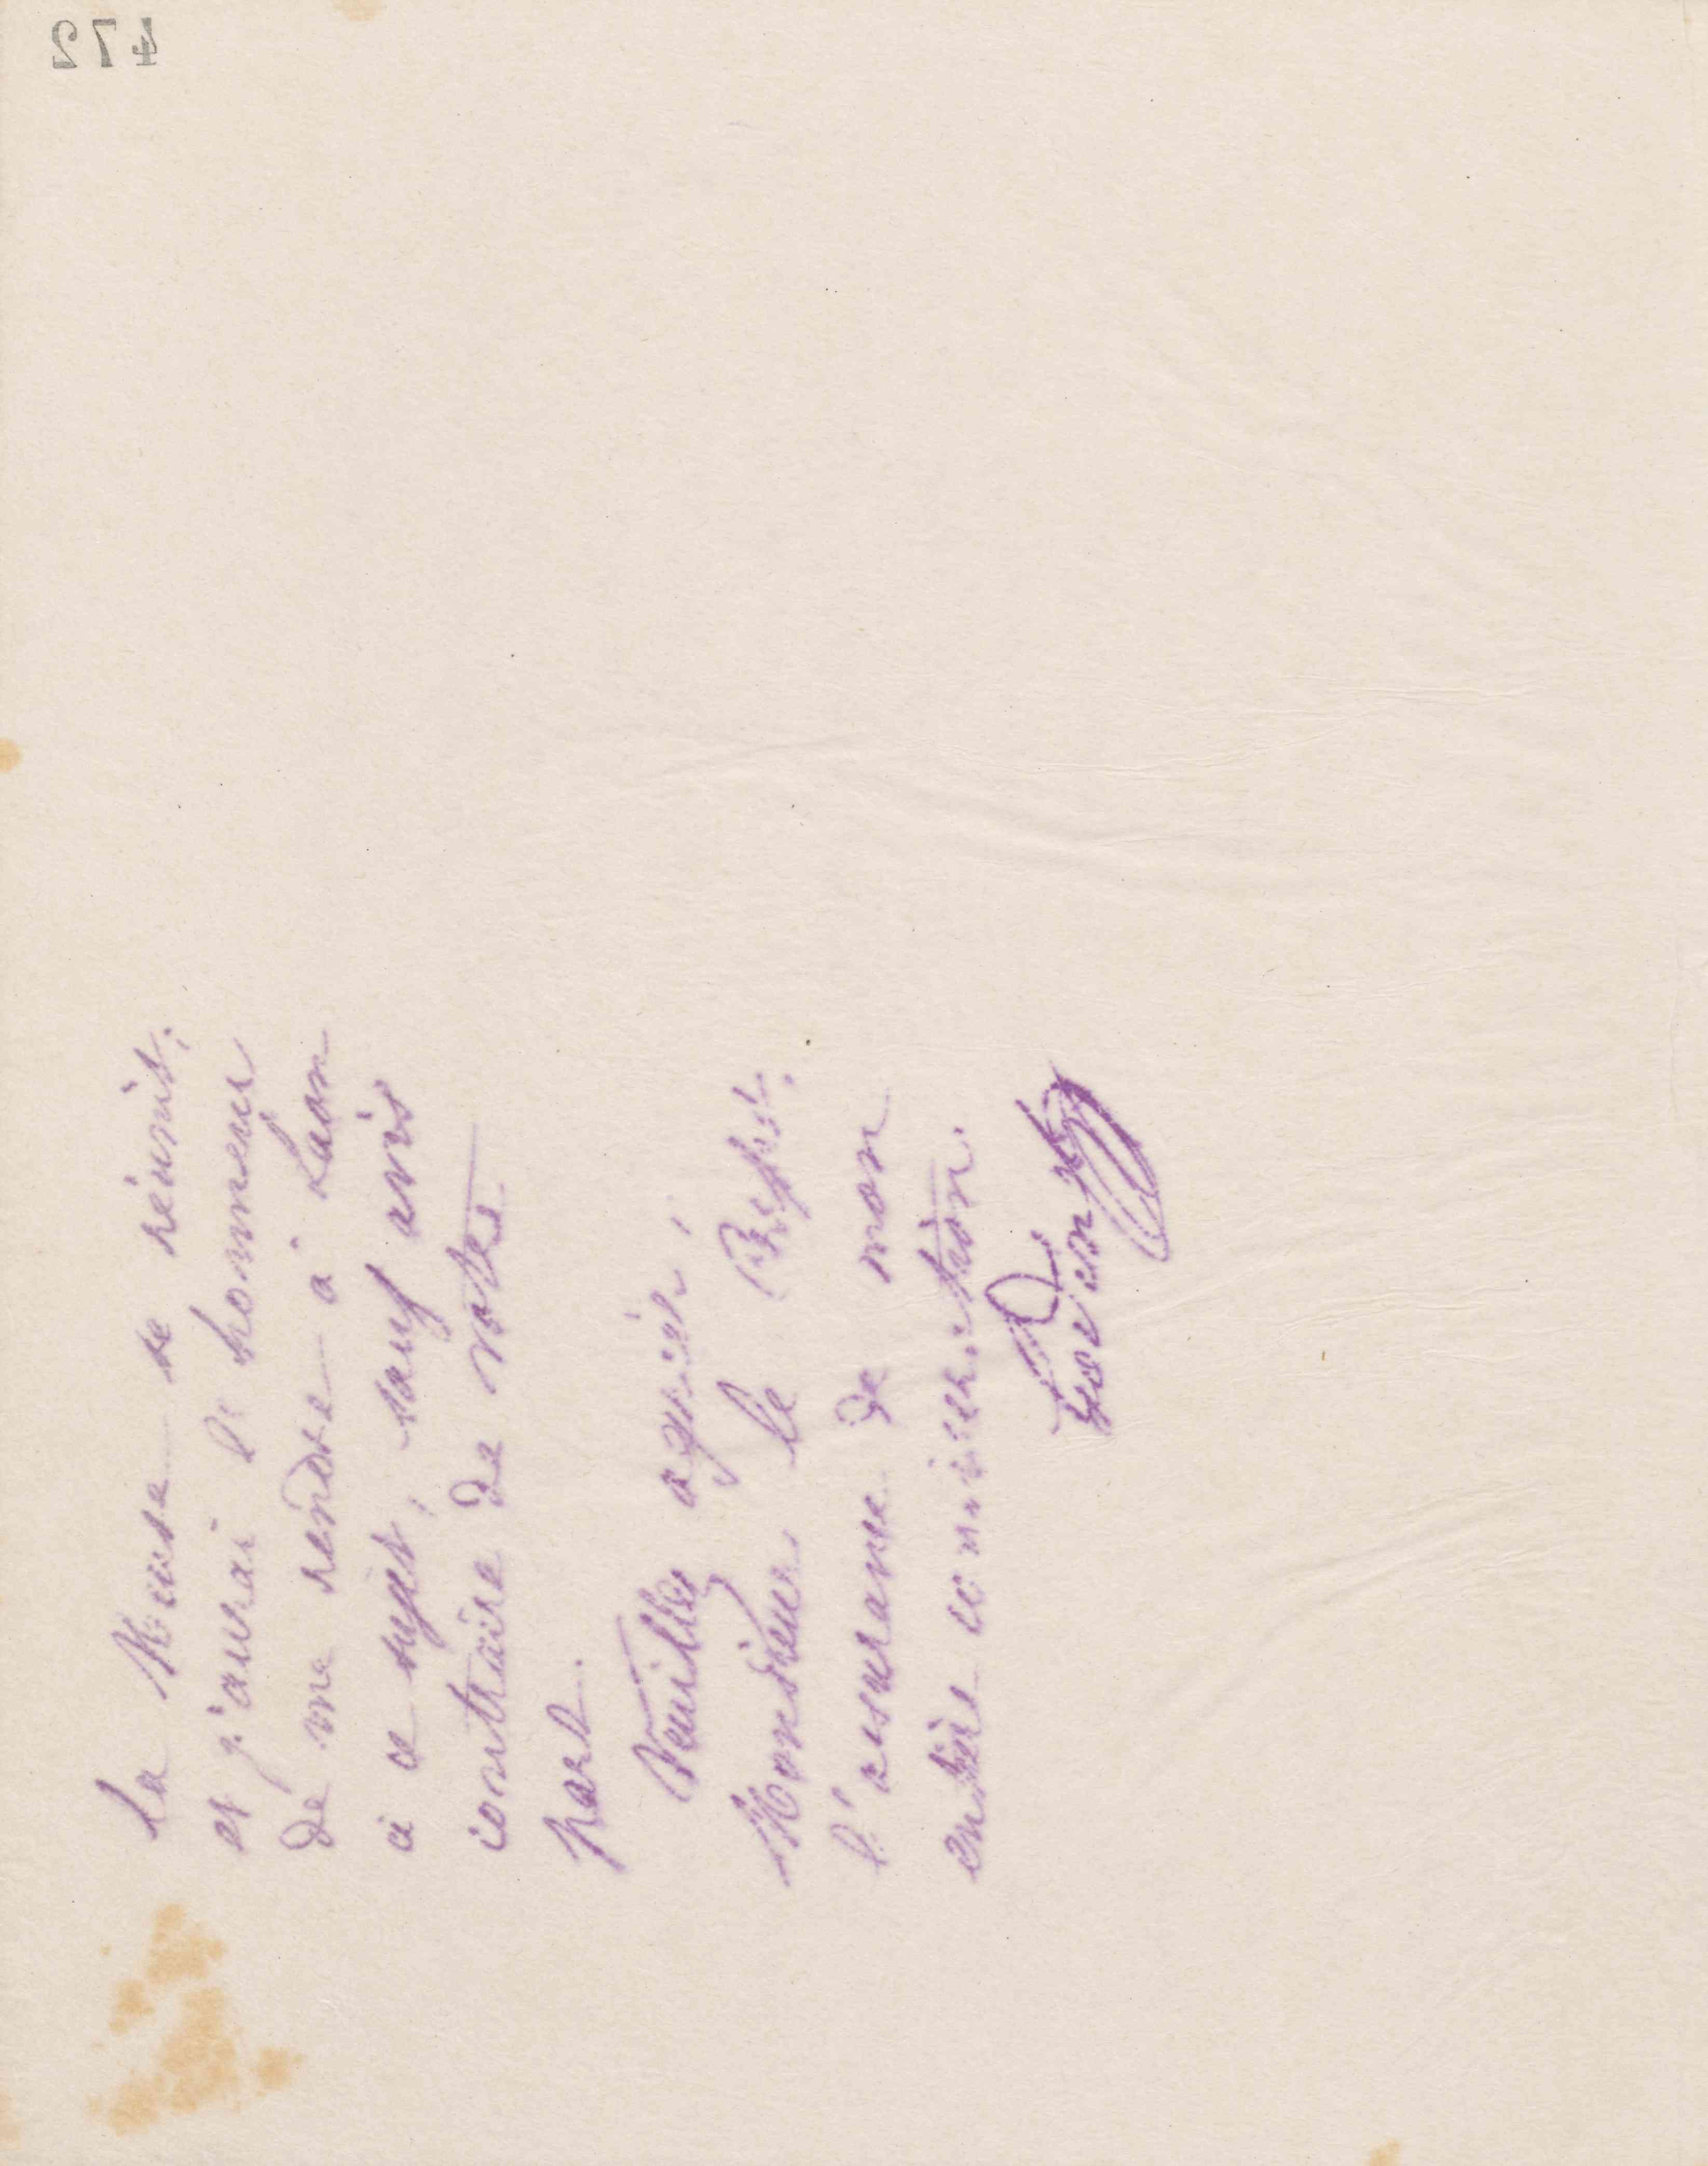 274
la Meuse se réunit;
et j'aurai l'honneur
de me rendre à Laon
à ce sujet, sauf avis
contraire de votre
part.
Veuillez agréer,
Monsieur le Préfet,
l'assurance de mon
entière considération.
Godin